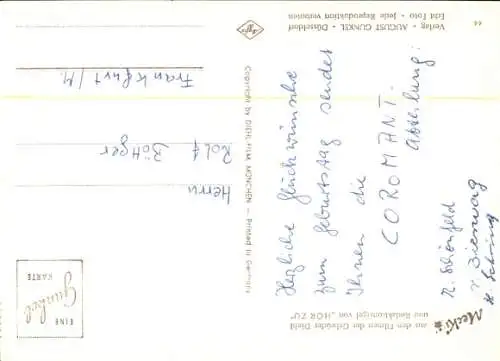 Mecki
aus den Filmen der Gebrüder Diehl
und Redaktionsigel von „HÖR ZU“
Herzliche Glückwünsche
zum Geburtstag sendet
Ihnen die
COROMANT.
Abteilung:
R. Schönfeld
Bierwag
66
Verlag • AUGUST GUNKEL • Düsseldorf
Echt Foto • Jede Reproduktion verboten
Copyright by DIEHL-FILM, MÜNCHEN — Printed in Germany
Agfa
EINE
Gunkel
KARTE
Herrn
Rolf Böttger
Frankfurt/M.